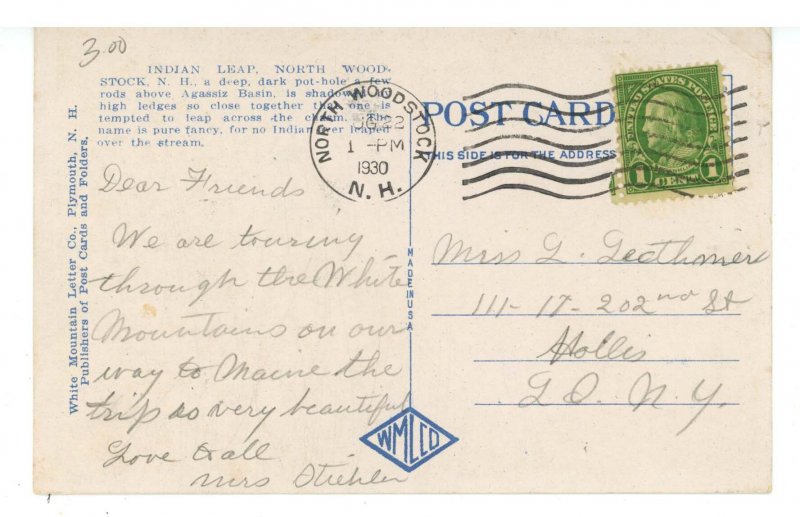 3.00
INDIAN LEAP, NORTH WOOD-
STOCK, N. H., a deep, dark pot-hole a few
rods above Agassiz Basin, is shadowed
high ledges so close together that one is
tempted to leap across the chasm. The
name is pure fancy, for no Indian ever leaped
over the stream.
White Mountain Letter Co., Plymouth, N. H.
Publishers of Post Cards and Folders.
NORTH WOODSTOCK
22
1 -PM
1930
N. H.
POST CARD
THIS SIDE IS FOR THE ADDRESS
UNITED STATES POSTAGE
1 CENT 1
Dear Friends
We are touring
through the White
Mountains on our
way to Maine the
trip so very beautiful
Love to all
Mrs Stiehler
MADE IN USA
WMLCO
Miss L.
111-17-202nd St
Hollis
L I. N. Y.